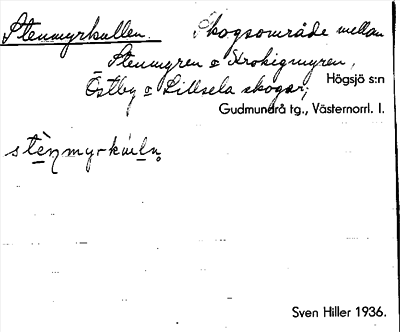 Stenmyrkullen. Skogsområde mellan
Stenmyren o Krokigmyren,
Östby o Lillsela skogar;
Högsjö s:n
Gudmundrå tg., Västernorrl. l.
Sven Hiller 1936.